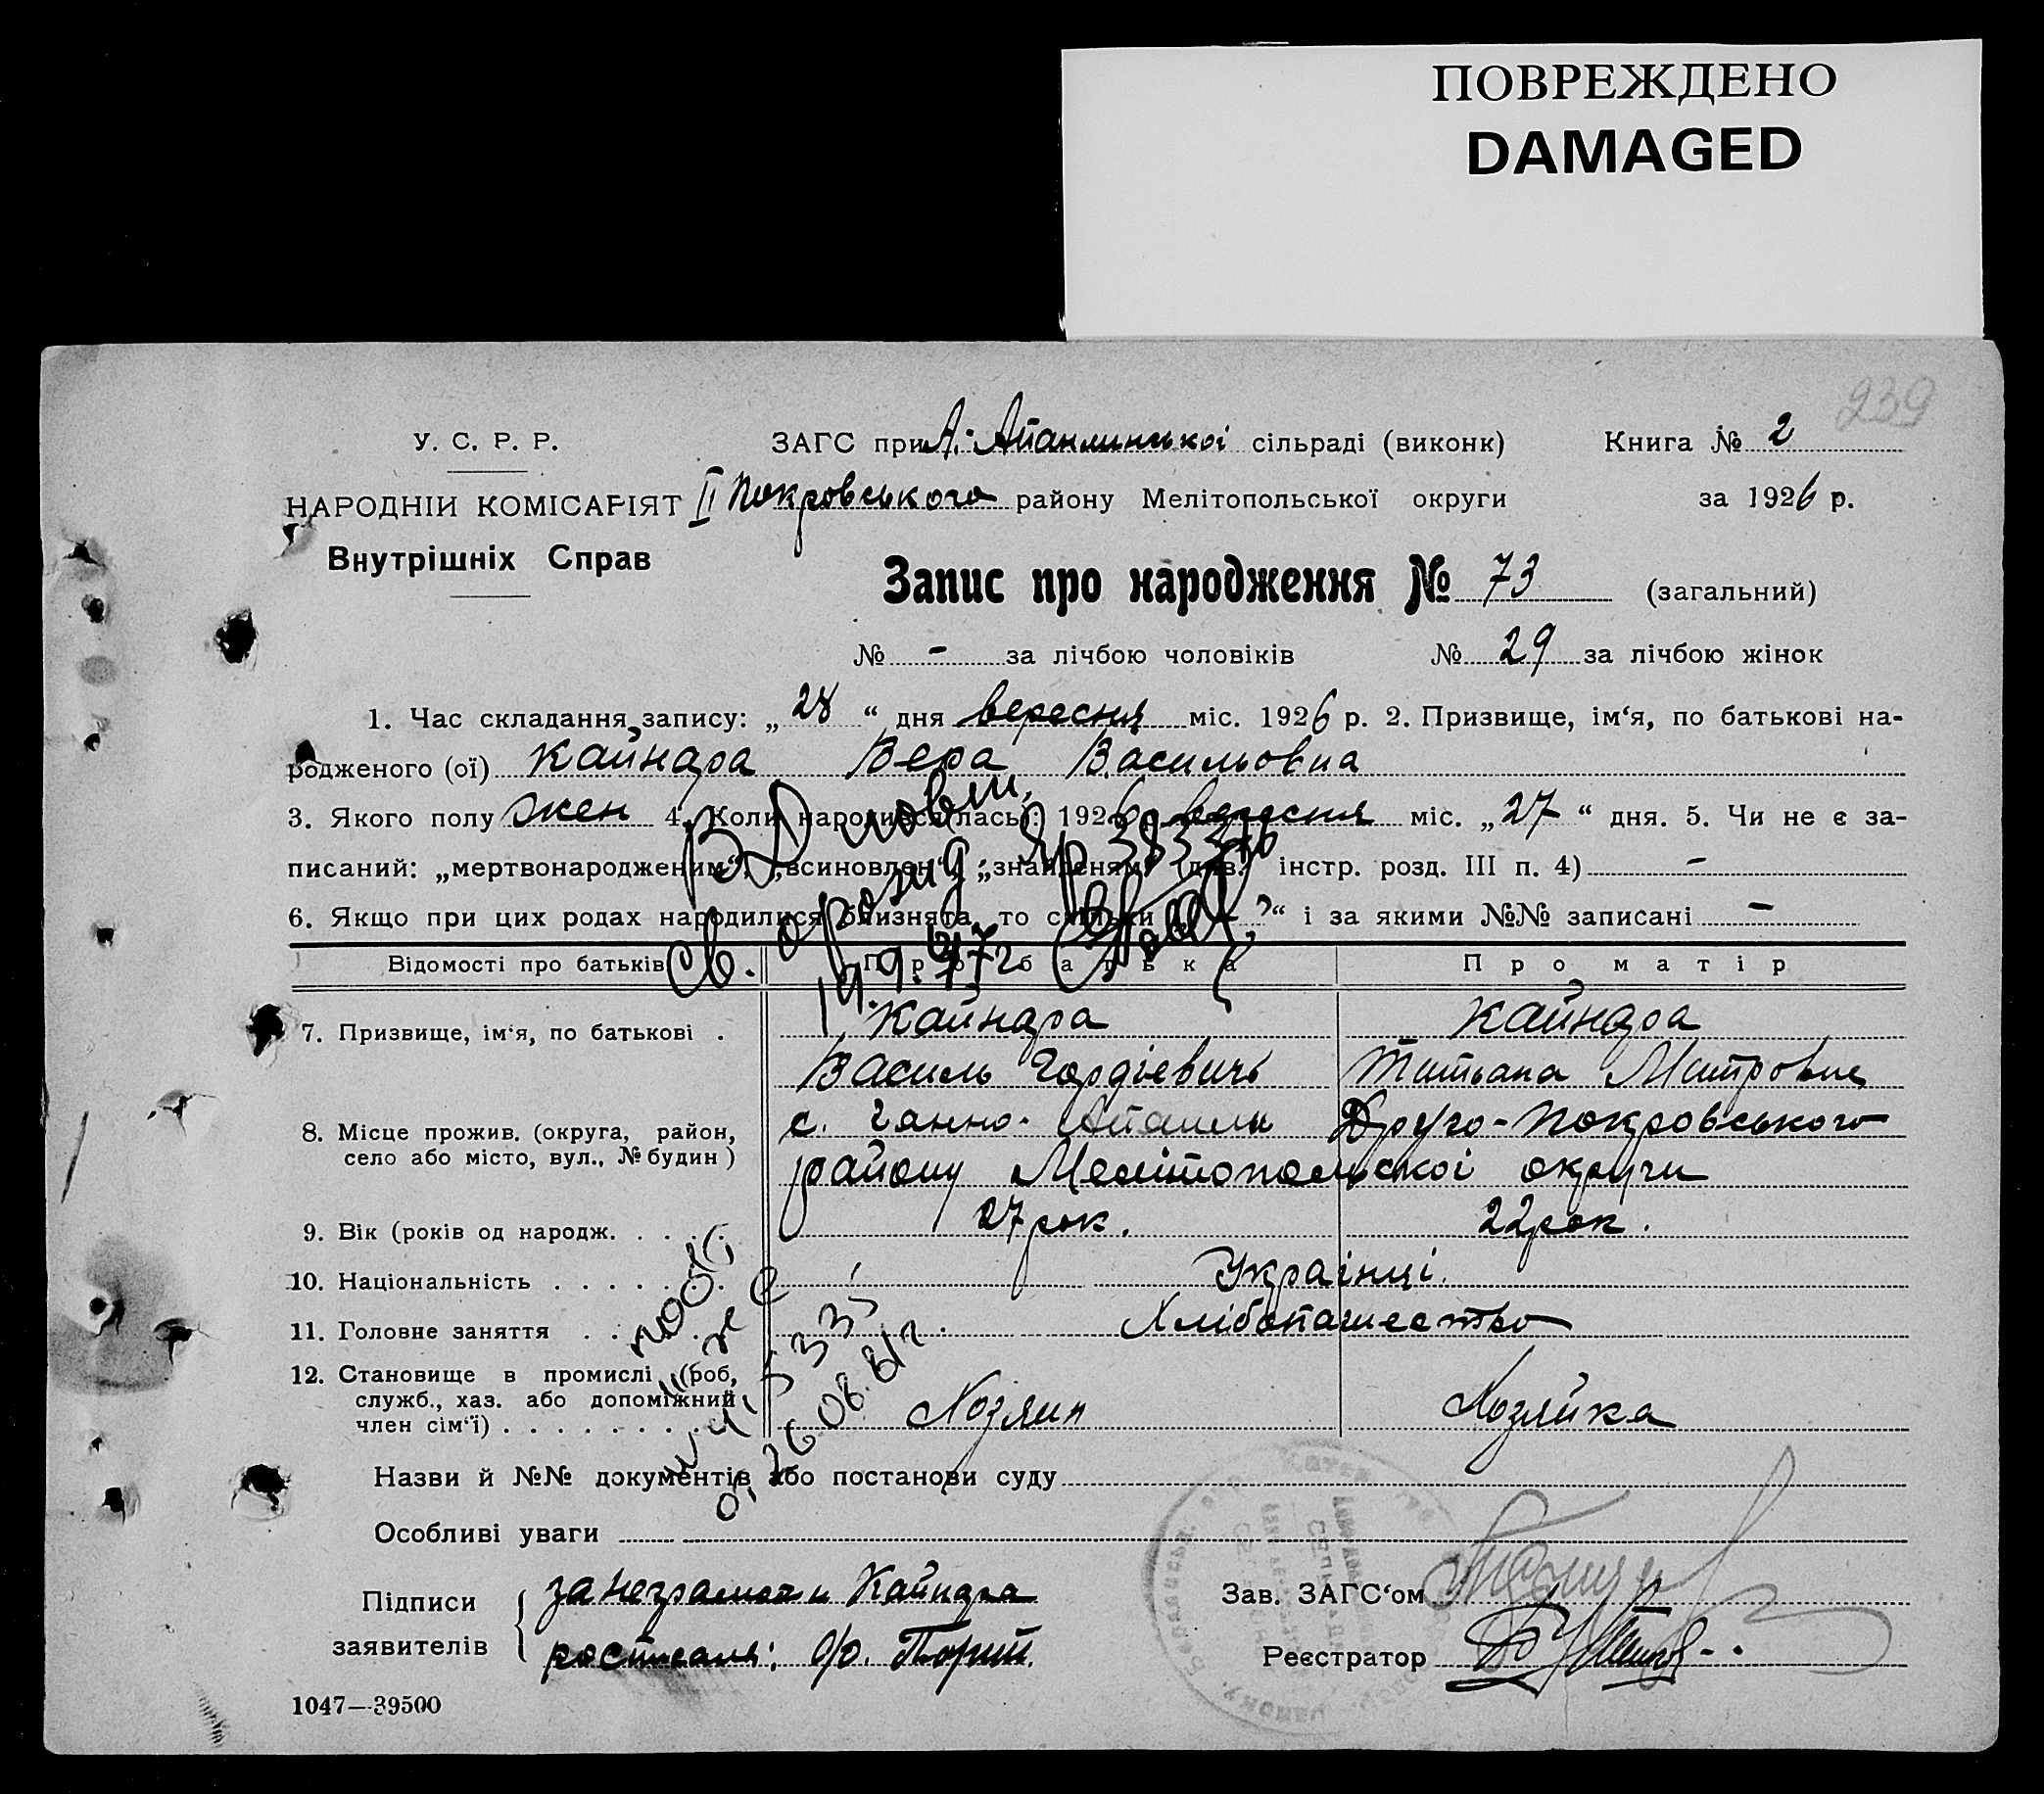 ПОВРЕЖДЕНО
DAMAGED
239
У. С. Р. Р.
ЗАГС при А. Апанлинської сільраді (виконк)
Книга № 2
НАРОДНІЙ КОМІСАРІЯТ
II Покровського району Мелітопольської округи
за 1926 р.
Внутрішніх Справ
Запис про народження № 73 (загальний)
№ - за лічбою чоловіків № 29 за лічбою жінок
1. Час складання запису: „ 28 “ дня вересня міс. 1926 р. 2. Призвище, ім‘я, по батькові на-
родженого (ої) Кайнара Вера Васильовна
3. Якого полу жен 4. Коли народився(лась): 1926 р. вересня міс. „ 27 “ дня. 5. Чи не є за-
писаний: „мертвонародженим“, „всиновлен“, „знайденям“ (див. інстр. розд. III п. 4) -
6. Якщо при цих родах народилися близнята, то скільки “ і за якими №№ записані -
св. о рожд.
383376
19.9.
Відомості про батьків
Про батька
Про матір
7. Призвище, ім‘я, по батькові .
Кайнара
Кайнара
Василь Гордієвичь
Титьана Митровна
8. Місце прожив. (округа, район,
село або місто, вул., № будин)
с. Ганно-Апанли Друго-Покровського
району Мелітопольскої округи
9. Вік (років од народж. . . . .
27 рок.
22 рок.
10. Національність . . . . . . .
Українці.
11. Головне заняття . . . . . .
Хлібопашество
12. Становище в промислі (роб,
служб., хаз. або допоміжний
член сім‘ї) . . . . . . . . .
Хозяин
Хозяйка
Назви й №№ документів або постанови суду
Особливі уваги
Підписи
заявителів
за неграмотн Кайнара
Зав. ЗАГС‘ом
Реєстратор
1047—39500